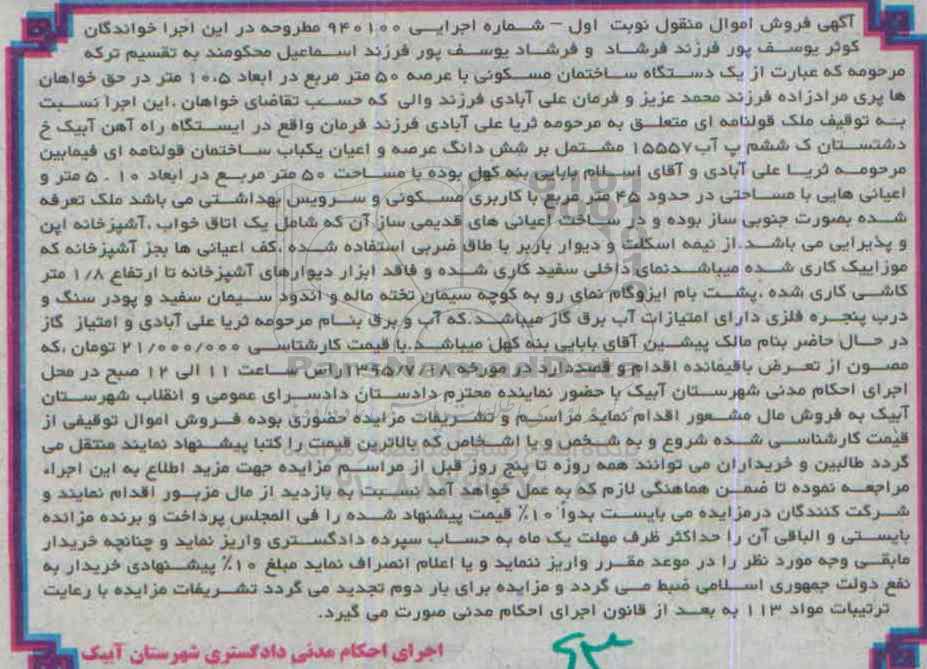 آگهی فروش اموال منقول نوبت اول – شماره اجرایی ۹۴۰۱۰۰ مطروحه در این اجرا خواندگان
کوثر یوسف پور فرزند فرشاد و فرشاد یوسف پور فرزند اسماعیل محکومند به تقسیم ترکه
مرحومه که عبارت از یک دستگاه ساختمان مسکونی با عرصه ۵۰ متر مربع در ابعاد ۱۰.۵ متر در حق خواهان
ها پری مرادزاده فرزند محمد عزیز و فرمان علی آبادی فرزند والی که حسب تقاضای خواهان .این اجرا نسبت
به توقیف ملک قولنامه ای متعلق به مرحومه ثریا علی آبادی فرزند فرمان واقع در ایستگاه راه آهن آبیک خ
دشتستان ک ششم پ آب۱۵۵۵۷ مشتمل بر شش دانگ عرصه و اعیان یکباب ساختمان قولنامه ای فیمابین
مرحومه ثریا علی آبادی و آقای اسلام بابایی بنه کهل بوده با مساحت ۵۰ متر مربع در ابعاد ۱۰ . ۵ متر و
اعیانی هایی با مساحتی در حدود ۴۵ متر مربع با کاربری مسکونی و سرویس بهداشتی می باشد ملک تعرفه
شده بصورت جنوبی ساز بوده و در ساخت اعیانی های قدیمی ساز آن که شامل یک اتاق خواب .آشپزخانه اپن
و پذیرایی می باشد.از نیمه اسکلت و دیوار باربر با طاق ضربی استفاده شده .کف اعیانی ها بجز آشپزخانه که
موزاییک کاری شده میباشدنمای داخلی سفید کاری شده و فاقد ابزار دیوارهای آشپزخانه تا ارتفاع ۱/۸ متر
کاشی کاری شده .پشت بام ایزوگام نمای رو به کوچه سیمان تخته ماله و اندود سیمان سفید و پودر سنگ و
درب پنجره فلزی دارای امتیازات آب برق گاز میباشد.که آب و برق بنام مرحومه ثریا علی آبادی و امتیاز گاز
در حال حاضر بنام مالک پیشین آقای بابایی بنه کهل میباشد.با قیمت کارشناسی ۲۱/۰۰۰/۰۰۰ تومان .که
مصون از تعرض باقیمانده اقدام و قصددارد در مورخه ۱۳۹۵/۷/۱۸راس ساعت ۱۱ الی ۱۲ صبح در محل
اجرای احکام مدنی شهرستان آبیک با حضور نماینده محترم دادستان دادسرای عمومی و انقلاب شهرستان
آبیک به فروش مال مشعور اقدام نماید مراسم و تشریفات مزایده حضوری بوده فروش اموال توقیفی از
قیمت کارشناسی شده شروع و به شخص و یا اشخاص که بالاترین قیمت را کتبا پیشنهاد نمایند منتقل می
گردد طالبین و خریداران می توانند همه روزه تا پنج روز قبل از مراسم مزایده جهت مزید اطلاع به این اجراء
مراجعه نموده تا ضمن هماهنگی لازم که به عمل خواهد آمد نسبت به بازدید از مال مزبور اقدام نمایند و
شرکت کنندگان درمزایده می بایست بدوا ۱۰٪ قیمت پیشنهاد شده را فی المجلس پرداخت و برنده مزائده
بایستی و الباقی آن را حداکثر ظرف مهلت یک ماه به حساب سپرده دادگستری واریز نماید و چنانچه خریدار
مابقی وجه مورد نظر را در موعد مقرر واریز ننماید و یا اعلام انصراف نماید مبلغ ۱۰٪ پیشنهادی خریدار به
نفع دولت جمهوری اسلامی ضبط می گردد و مزایده برای بار دوم تجدید می گردد تشریفات مزایده با رعایت
ترتیبات مواد ۱۱۳ به بعد از قانون اجرای احکام مدنی صورت می گیرد.
اجرای احکام مدنی دادگستری شهرستان آبیک